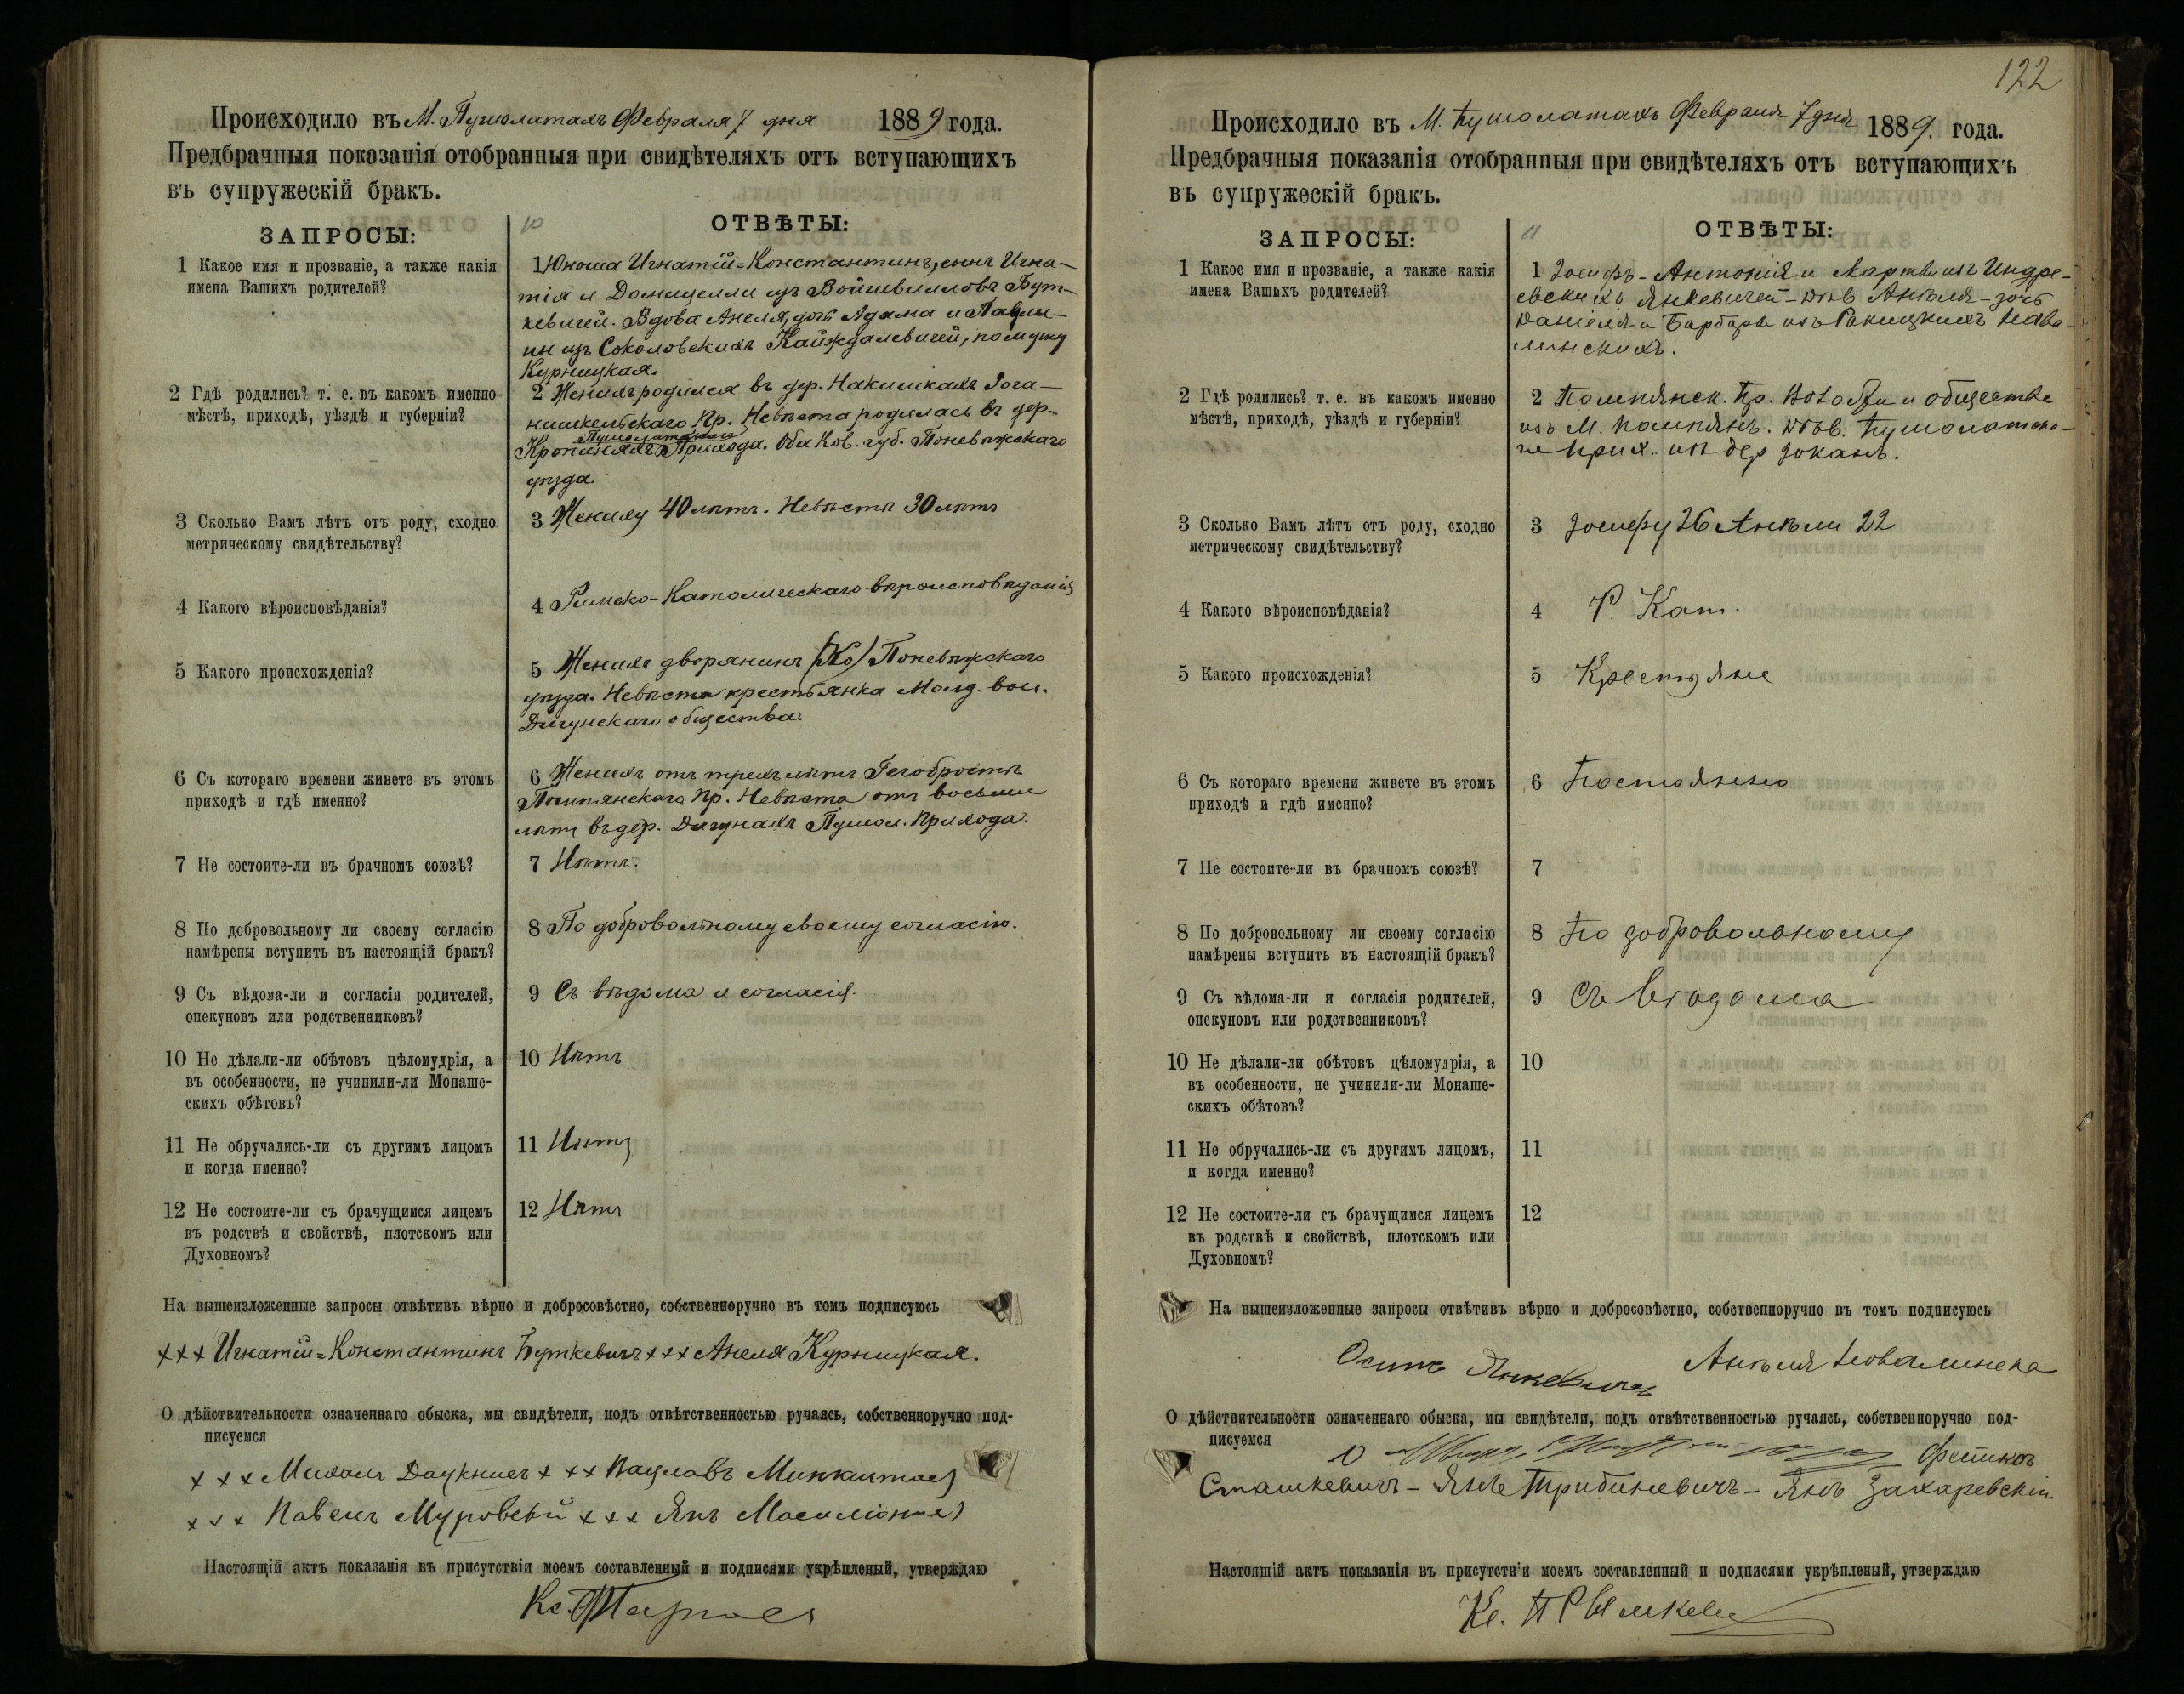 Происходило въ М. Пушолатахъ Февраля 7 дня 1889 года.
Предбрачныя показанія отобранныя при свидѣтеляхъ отъ вступающихъ
въ супружескій бракъ.
10
ЗАПРОСЫ:
ОТВѢТЫ:
1 Какое имя и прозваніе, а также какія
имена Вашихъ родителей?
1 Юноша Игнатій=Константинъ, сынъ Игна-
тія и Доницелли изъ Войшвилловъ Бут-
кевичей. Вдова Анеля, дочь Адама и Паули-
ны изъ Соколовскихъ Кайждалевичей, по мужу
Курницкая.
2 Гдѣ родились? т. е. въ какомъ именно
мѣстѣ, приходѣ, уѣздѣ и губерніи?
2 Женихъ родился въ дер. Накишкахъ Іога-
нишкельскаго Пр. Невѣста родилась въ дер.
Пушолатскаго
Прихода. Оба Ков. губ. Поневѣжскаго
уѣзда.
3 Сколько Вамъ лѣтъ отъ роду, сходно
метрическому свидѣтельству?
3 Жениху 40 лѣтъ. Невѣстѣ 30 лѣтъ
4 Какого вѣроисповѣданія?
4 Римско-Католическаго вѣроисповѣданія
5 Какого происхожденія?
5 Женихъ дворянинъ (Ко) Поневѣжскаго
уѣзда. Невѣста крестьянка вол.
Дигунскаго общества.
6 Съ котораго времени живете въ этомъ
приходѣ и гдѣ именно?
6 Женихъ отъ трехъ лѣтъ Гегобростъ
Помпянскаго Пр. Невѣста отъ восьми
лѣтъ въ дер. Дигунахъ Пушол. Прихода.
7 Не состоите-ли въ брачномъ союзѣ?
7 Нѣтъ.
8 По добровольному ли своему согласію
намѣрены вступить въ настоящій бракъ?
8 По добровольному своему согласію.
9 Съ вѣдома-ли и согласія родителей,
опекуновъ или родственниковъ?
9 Съ вѣдома и согласія.
10 Не дѣлали-ли обѣтовъ цѣломудрія, а
въ особенности, не учинили-ли Монаше-
скихъ обѣтовъ?
10 Нѣтъ
11 Не обручались-ли съ другимъ лицомъ
и когда именно?
11 Нѣтъ
12 Не состоите-ли съ брачущимся лицемъ
въ родствѣ и свойствѣ, плотскомъ или
Духовномъ?
12 Нѣтъ
На вышеизложенные запросы отвѣтивъ вѣрно и добросовѣстно, собственноручно въ томъ подписуюсь
+++ Игнатій=Константинъ Буткевичъ +++ Анеля Курницкая.
О дѣйствительности означеннаго обыска, мы свидѣтели, подъ отвѣтственностью ручаясь, собственноручно под-
писуемся
+++ Михаилъ +++ Вацлавъ
+++ Павелъ +++ Янъ
Настоящій актъ показанія въ присутствіи моемъ составленный и подписями укрѣпленый, утверждаю
Кс.
122
Происходило въ М. Пушолатахъ Февраля 7 дня 1889. года.
Предбрачныя показанія отобранныя при свидѣтеляхъ отъ вступающихъ
въ супружескій бракъ.
11
ЗАПРОСЫ:
ОТВѢТЫ:
1 Какое имя и прозваніе, а также какія
имена Вашихъ родителей?
1 Іосифъ - Антонія и Марты изъ Индре-
евскихъ Янкевичей - дѣв Анѣля - дочь
Даніеля и Барбары изъ Ракицкихъ Нова-
линскихъ.
2 Гдѣ родились? т. е. въ какомъ именно
мѣстѣ, приходѣ, уѣздѣ и губерніи?
2 Помпянск. Пр. Волости и общества
изъ М. Помпянъ. дѣв. Пушолатска-
го прих. изъ дер
3 Сколько Вамъ лѣтъ отъ роду, сходно
метрическому свидѣтельству?
3 Іосифу 26 Анѣли 22
4 Какого вѣроисповѣданія?
4 Р. Кат.
5 Какого происхожденія?
5 Крестьяне
6 Съ котораго времени живете въ этомъ
приходѣ и гдѣ именно?
6 Постоянно
7 Не состоите-ли въ брачномъ союзѣ?
7
8 По добровольному ли своему согласію
намѣрены вступить въ настоящій бракъ?
8 По добровольному
9 Съ вѣдома-ли и согласія родителей,
опекуновъ или родственниковъ?
9 Съ вѣдома
10 Не дѣлали-ли обѣтовъ цѣломудрія, а
въ особенности, не учинили-ли Монаше-
скихъ обѣтовъ?
10
11 Не обручались-ли съ другимъ лицомъ,
и когда именно?
11
12 Не состоите-ли съ брачущимся лицемъ
въ родствѣ и свойствѣ, плотскомъ или
Духовномъ?
12
На вышеизложенные запросы отвѣтивъ вѣрно и добросовѣстно, собственноручно въ томъ подписуюсь
Осипъ Янкевичъ Анѣля Новалинска
О дѣйствительности означеннаго обыска, мы свидѣтели, подъ отвѣтственностью ручаясь, собственноручно под-
писуемся
Сташкевичъ - Янъ Трибуневичъ - Янъ Захаревскій
Настоящій актъ показанія въ присутствіи моемъ составленный и подписями укрѣпленый, утверждаю
Кс.